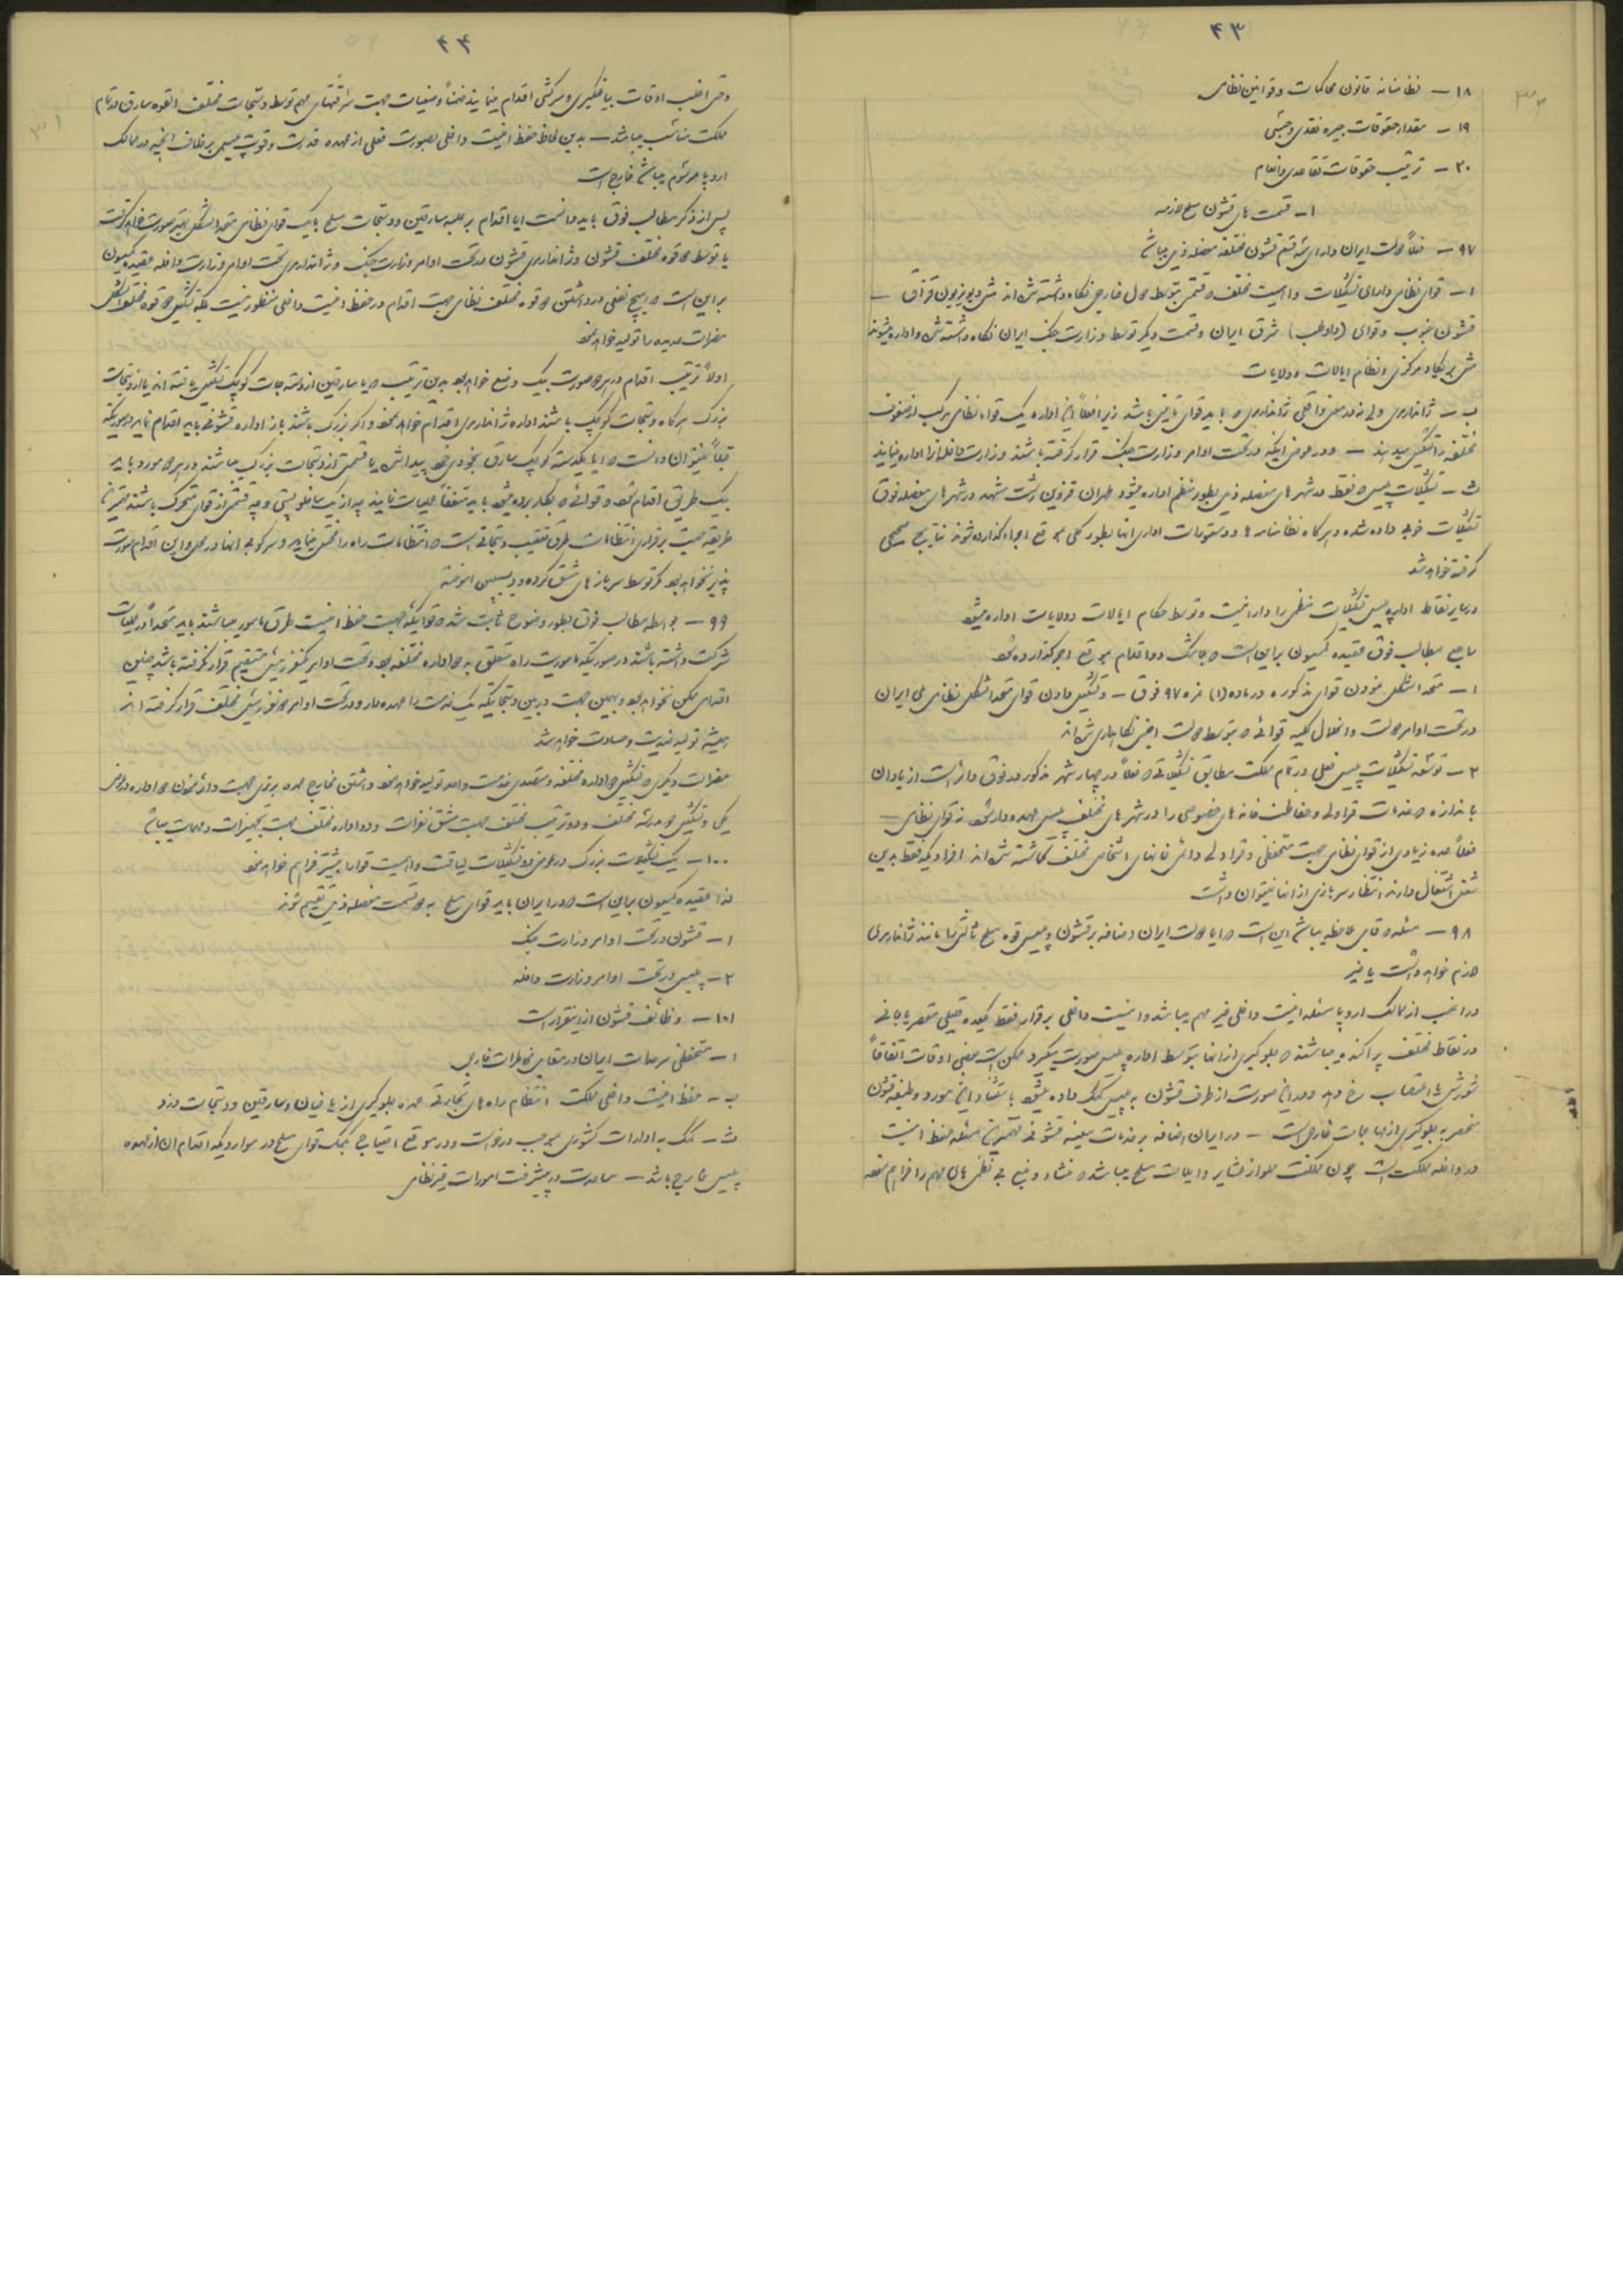 ۴۳
۱۸ – نظامنامه قانون محاکمات و قوانین نظامی
۱۹ – مقدار حقوقات جیره نقدی و جنسی
۲۰ – ترتیب حقوقات تقاعدی و انعام
۱– قسمت های قشون مسلح لازمه
۹۷ – فعلاً دولت ایران دارای سه قسم قشون مختلفه مفصله ذیل میباشد
۱– قوای نظامی دارای تشکیلات و اهمیت مختلف و قسمتی بتوسط دول خارجی نگاه داشته شده اند مثل دیویزیون قزاق –
قشون جنوب و قوای (داوطلب) شرق ایران و قسمت دیگر توسط وزارت جنگ ایران نگاه داشته شده و اداره میشوند
مثل بریگاد مرکزی و نظام ایالات و ولایات
ب – ژاندارمری ولی نه در معنی واقعی ژاندارمری که باید قوای تأمینی باشد زیرا فعلاً این اداره یک قواء نظامی مرکب از صنوف
مختلفه را تشکیل میدهند – و در عوض اینکه در تحت اوامر وزارت جنگ قرار گرفته باشند وزارت داخله آنرا اداره مینماید
ث – تشکیلات پلیس که فقط در شهرهای مفصله ذیل بطور منظم اداره میشود طهران قزوین رشت مشهد در شهرهای مفصله فوق
تشکیلات خوبی داده شده و هرگاه نظامنامه ها و دستورات اداری آنها بطور کلی بموقع اجراء گذارده شوند نتایج صحیحی
گرفته خواهد شد
در سایر نقاط اداره پلیس تشکیلات منظمی را دارا نیست و توسط حکام ایالات و ولایات اداره میشود
راجع بمطالب فوق عقیده کمیسیون بر این است که بلاشک دو اقدام بموقع اجرا گذارده شود
۱– متحدالشکل نمودن قوای مذکوره در ماده (۱) نمره ۹۷ فوق – و تشکیل دادن قوای متحدالشکل نظامی ملی ایران
در تحت اوامر دولت و انحلال کلیه قوائی که بتوسط دولت اجنبی نگاهداری شده اند
۲– توسعه تشکیلات پلیس فعلی در تمام مملکت مطابق تشکیلاتی که فعلاً در چهار شهر مذکور در فوق دائر است از یاد آن
باندازه که خدمات قراولی و حفاظت خانه های خصوصی را در شهرهای مختلف پلیس عهده دار شود نه قوای نظامی –
فعلاً عده زیادی از قوای نظامی جهت مستحفظی و قراولی دائمی خانهای اشخاص مختلف گماشته شده اند افرادیکه فقط بدین
شغل اشتغال دارند انتظار سربازی از آنها نمیتوان داشت
۹۸ – مسئله که قابل ملاحظه میباشد این است که آیا دولت ایران اضافه بر قشون و پلیس قوه مسلح ثالثی را مانند ژاندارمری
لازم خواهد داشت یا خیر
در اغلب از ممالک اروپا مسئله امنیت داخلی غیر مهم میباشد و امنیت داخلی برقرار فقط یکعده قلیلی مقصر یا جانی
در نقاط مختلف پراکنده میباشند که جلوگیری از آنها بتوسط اداره پلیس صورت میگیرد ممکن است بعضی اوقات اتفاقاً
شورش یا اعتصاب رخ دهد و در این صورت از طرف قشون به پلیس کمک داده میشود باستثناء این مورد وظیفه قشون
منحصر به جلوگیری از مهاجمات خارجی است – در ایران اضافه بر خدمات معینه قشونی مهمترین مسئله حفظ امنیت
در داخله مملکت است چون مملکت مملو از عشایر و ایلات مسلح میباشد که منشاء و منبع بی نظمی های مهم را فراهم نموده
۴۴
و حتی اغلب اوقات بیاغیگری و سرکشی اقدام مینمایند ضمناً وضعیات جهت سرقتهای مهم توسط دستجات مختلف القوه سارق در تمام
مملکت مناسب میباشد – بدین لحاظ حفظ امنیت داخلی بصورت فعلی از عهده قدرت و قوت پلیس بر خلاف آنچه در ممالک
اروپا مرسوم میباشد خارج است
پس از ذکر مطالب فوق باید دانست آیا اقدام بر علیه سارقین و دستجات مسلح با یک قوای نظامی متحدالشکل بهتر صورت خواهد گرفت
یا توسط دو قوه مختلف قشون و ژاندارمری قشون در تحت اوامر وزارت جنگ و ژاندارمری تحت اوامر وزارت داخله عقیده کمیسیون
بر این است که هیچ نفعی در داشتن دو قوه مختلف نظامی جهت اقدام در حفظ امنیت داخلی منظور نیست بلکه تشکیل دو قوه مختلف الشکل
مضرات عدیده را تولید خواهد نمود
اولاً ترتیب اقدام در هر دو صورت بیک وضع خواهد بود بدین ترتیب که یا سارقین از دسته جات کوچک تشکیل یافته اند یا از دستجات
بزرگ هرگاه دستجات کوچک باشند اداره ژاندارمری اقدام خواهد نمود و اگر بزرگ باشند باز اداره قشونی باید اقدام نماید در صورتیکه
قبلاً نمیتوان دانست که آیا یکدسته کوچک سارق بخودی خود پیدا شده یا قسمتی از دستجات بزرگ میباشند در هر دو مورد باید
بیک طریق اقدام شود و قوائی که بکار برده میشود باید متفقاً عملیات نمایند چه از یک ساخلو پستی و چه قسمتی از قوای متحرک باشند
طریقه جهت برقراری انتظامات طرق تعقیب دستجاتی است که انتظامات راه را مختل مینمایند و سرکوبی آنها در محل و این اقدام صورت
پذیر نخواهد بود مگر توسط سربازهای مشق کرده و دیسیپلین آموخته
۹۹ – بواسطه مطالب فوق بطور وضوح ثابت شد که قوائیکه جهت حفظ امنیت طرق مأمور میباشند باید متحداً در عملیات
شرکت داشته باشند در صورتیکه مأموریت راه متعلق به دو اداره مختلفه بود و تحت اوامر یکنفر رئیس مستقیم قرار نگرفته باشد چنین
اقدامی ممکن نخواهد بود و بهمین جهت در بین دستجاتیکه یک خدمت را عهده دار و در تحت اوامر دو نفر رئیس مختلف قرار گرفته اند
همیشه تولید ضدیت و حسادت خواهد شد
مضرات دیگری که تشکیل دو اداره مختلفه و متصدی خدمت واحد تولید خواهد نمود داشتن مخارج عمده بدون جهت و دائر نمودن دو اداره در عوض
یکی و تشکیل دو مدرسه مختلف و دو ترتیب مختلف جهت مشق نفرات و دو اداره مختلف جهت تجهیزات و مهمات میباشد
۱۰۰ – یک تشکیلات بزرگ در عوض دو تشکیلات لیاقت و اهمیت قوا را بیشتر فراهم خواهد نمود
لذا عقیده کمیسیون بر این است که در ایران باید قوای مسلح به دو قسمت مفصله ذیل تقسیم شوند
۱– قشون در تحت اوامر وزارت جنگ
۲– پلیس در تحت اوامر وزارت داخله
۱۰۱ – وظائف قشون از اینقرار است
۱– مستحفظی سرحدات ایران در مقابل مخاطرات خارجی
ب – حفظ امنیت داخلی مملکت انتظام راه های تجارتی عمده جلوگیری از یاغیان و سارقین و دستجات دزد
ث – کمک به ادارات کشوری بموجب درخواست و در موقع احتیاج بکمک قوای مسلح در مواردیکه اقدام آن از عهده
پلیس خارج باشد – مساعدت در پیشرفت امورات غیر نظامی